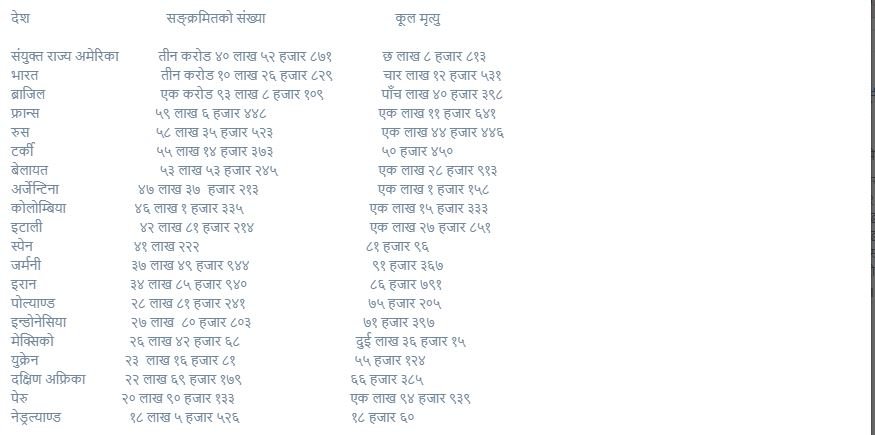 देश सङ्क्रमितको संख्या कूल मृत्यु
संयुक्त राज्य अमेरिका तीन करोड ४० लाख ५२ हजार ८७१ छ लाख ८ हजार ८१३
भारत तीन करोड १० लाख २६ हजार ८२९ चार लाख १२ हजार ५३१
ब्राजिल एक करोड ९३ लाख ८ हजार १०९ पाँच लाख ४० हजार ३९८
फ्रान्स ५९ लाख ६ हजार ४४८ एक लाख ११ हजार ६४१
रुस ५८ लाख ३५ हजार ५२३ एक लाख ४४ हजार ४४६
टर्की ५५ लाख १४ हजार ३७३ ५० हजार ४५०
बेलायत ५३ लाख ५३ हजार २४५ एक लाख २८ हजार ९१३
अर्जेन्टिना ४७ लाख ३७ हजार २१३ एक लाख १ हजार १५८
कोलोम्बिया ४६ लाख १ हजार ३३५ एक लाख १५ हजार ३३३
इटाली ४२ लाख ८१ हजार २१४ एक लाख २७ हजार ८५१
स्पेन ४१ लाख २२२ ८१ हजार ९६
जर्मनी ३७ लाख ४९ हजार ९४४ ९१ हजार ३६७
इरान ३४ लाख ८५ हजार ९४० ८६ हजार ७९१
पोल्याण्ड २८ लाख ८१ हजार २४१ ७५ हजार २०५
इन्डोनेसिया २७ लाख ८० हजार ८०३ ७१ हजार ३९७
मेक्सिको २६ लाख ४२ हजार ६८ दुई लाख ३६ हजार १५
युक्रेन २३ लाख १६ हजार ८१ ५५ हजार १२४
दक्षिण अफ्रिका २२ लाख ६९ हजार १७९ ६६ हजार ३८५
पेरु २० लाख ९० हजार १३३ एक लाख ९४ हजार ९३९
नेड्रल्याण्ड १८ लाख ५ हजार ५२६ १८ हजार ६०